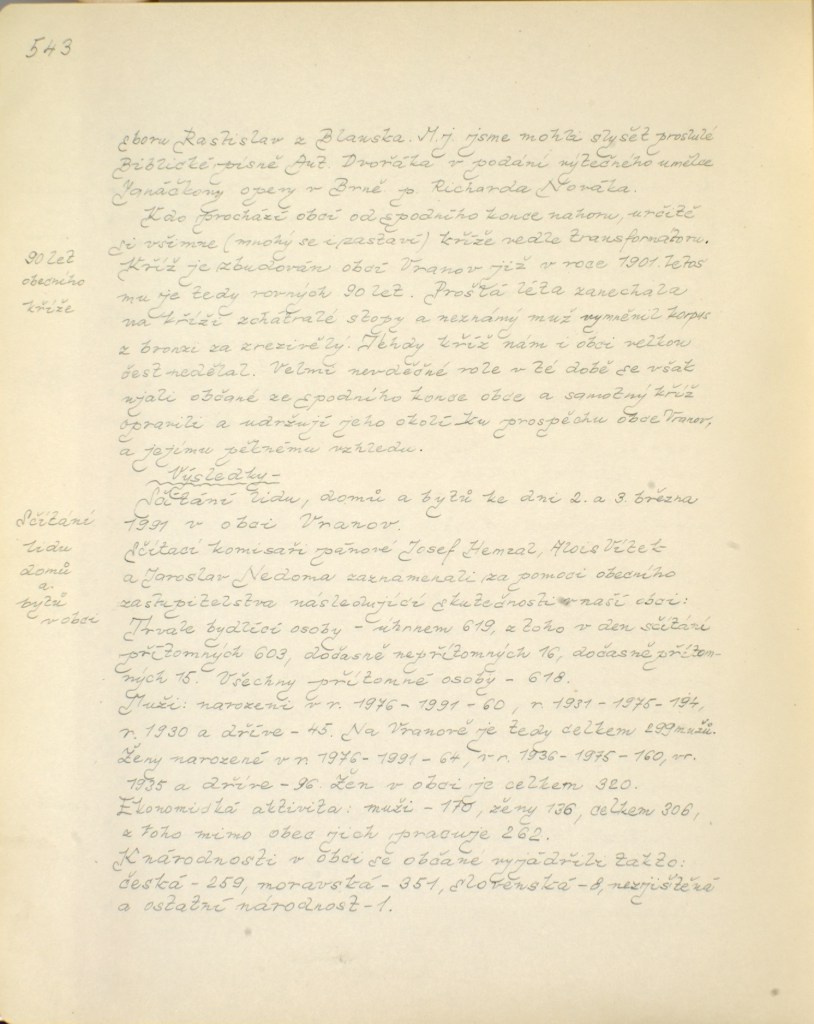 543
sboru Rastislav z Blanska. M.j. jsme mohli slyšet proslulé
Biblické písně Ant. Dvořáka v podání výtečného umělce
Janáčkovy opery v Brně p. Richarda Nováka.
Kdo prochází obcí od spodního konce nahoru, určitě
si všimne (mnohý se i zastaví) kříže vedle transformátoru.
90 let
obecního
kříže
Kříž je zbudován obcí Vranov již v roce 1901. letos
mu je tedy rovných 90 let. Prošlá léta zanechala
na kříži zchátralé stopy a neznámý muž vyměnil korpus
z bronzi za zrezivělý. Tehdy kříž nám i obci velkou
čest nedělal. Velmi nevděčné role v té době se však
ujali občané ze spodního konce obce a samotný kříž
opravili a udržují jeho okolí ku prospěchu obce Vranov,
a jejímu pěknému vzhledu.
Výsledky -
Sčítání lidu, domů a bytů ke dni 2. a 3. března
1991 v obci Vranov.
Sčítání
lidu
domů
a
bytů
v obci
Sčítací komisaři pánové Josef Hemzal, Alois Vítek
a Jaroslav Nedoma zaznamenali za pomoci obecního
zastupitelstva následující skutečnosti v naší obci:
Trvale bydlící osoby - úhrnem 619, z toho v den sčítání
přítomných 603, dočasně nepřítomných 16, dočasně přítom-
ných 15. Všechny přítomné osoby - 618.
Muži: narození v r. 1976 - 1991 - 60, r. 1931 - 1975 - 194,
r. 1930 a dříve - 45. Na Vranově je tedy celkem 299 mužů.
Ženy narozené v r. 1976 - 1991 - 64, v r. 1936 - 1975 - 160, v r.
1935 a dříve - 96. Žen v obci je celkem 320.
Ekonomická aktivita: muži - 170, ženy 136, celkem 306,
z toho mimo obec jich pracuje 262.
K národnosti v obci se občané vyjádřili takto:
česká - 259, moravská - 351, slovenská - 8, nezjištěná
a ostatní národnost - 1.